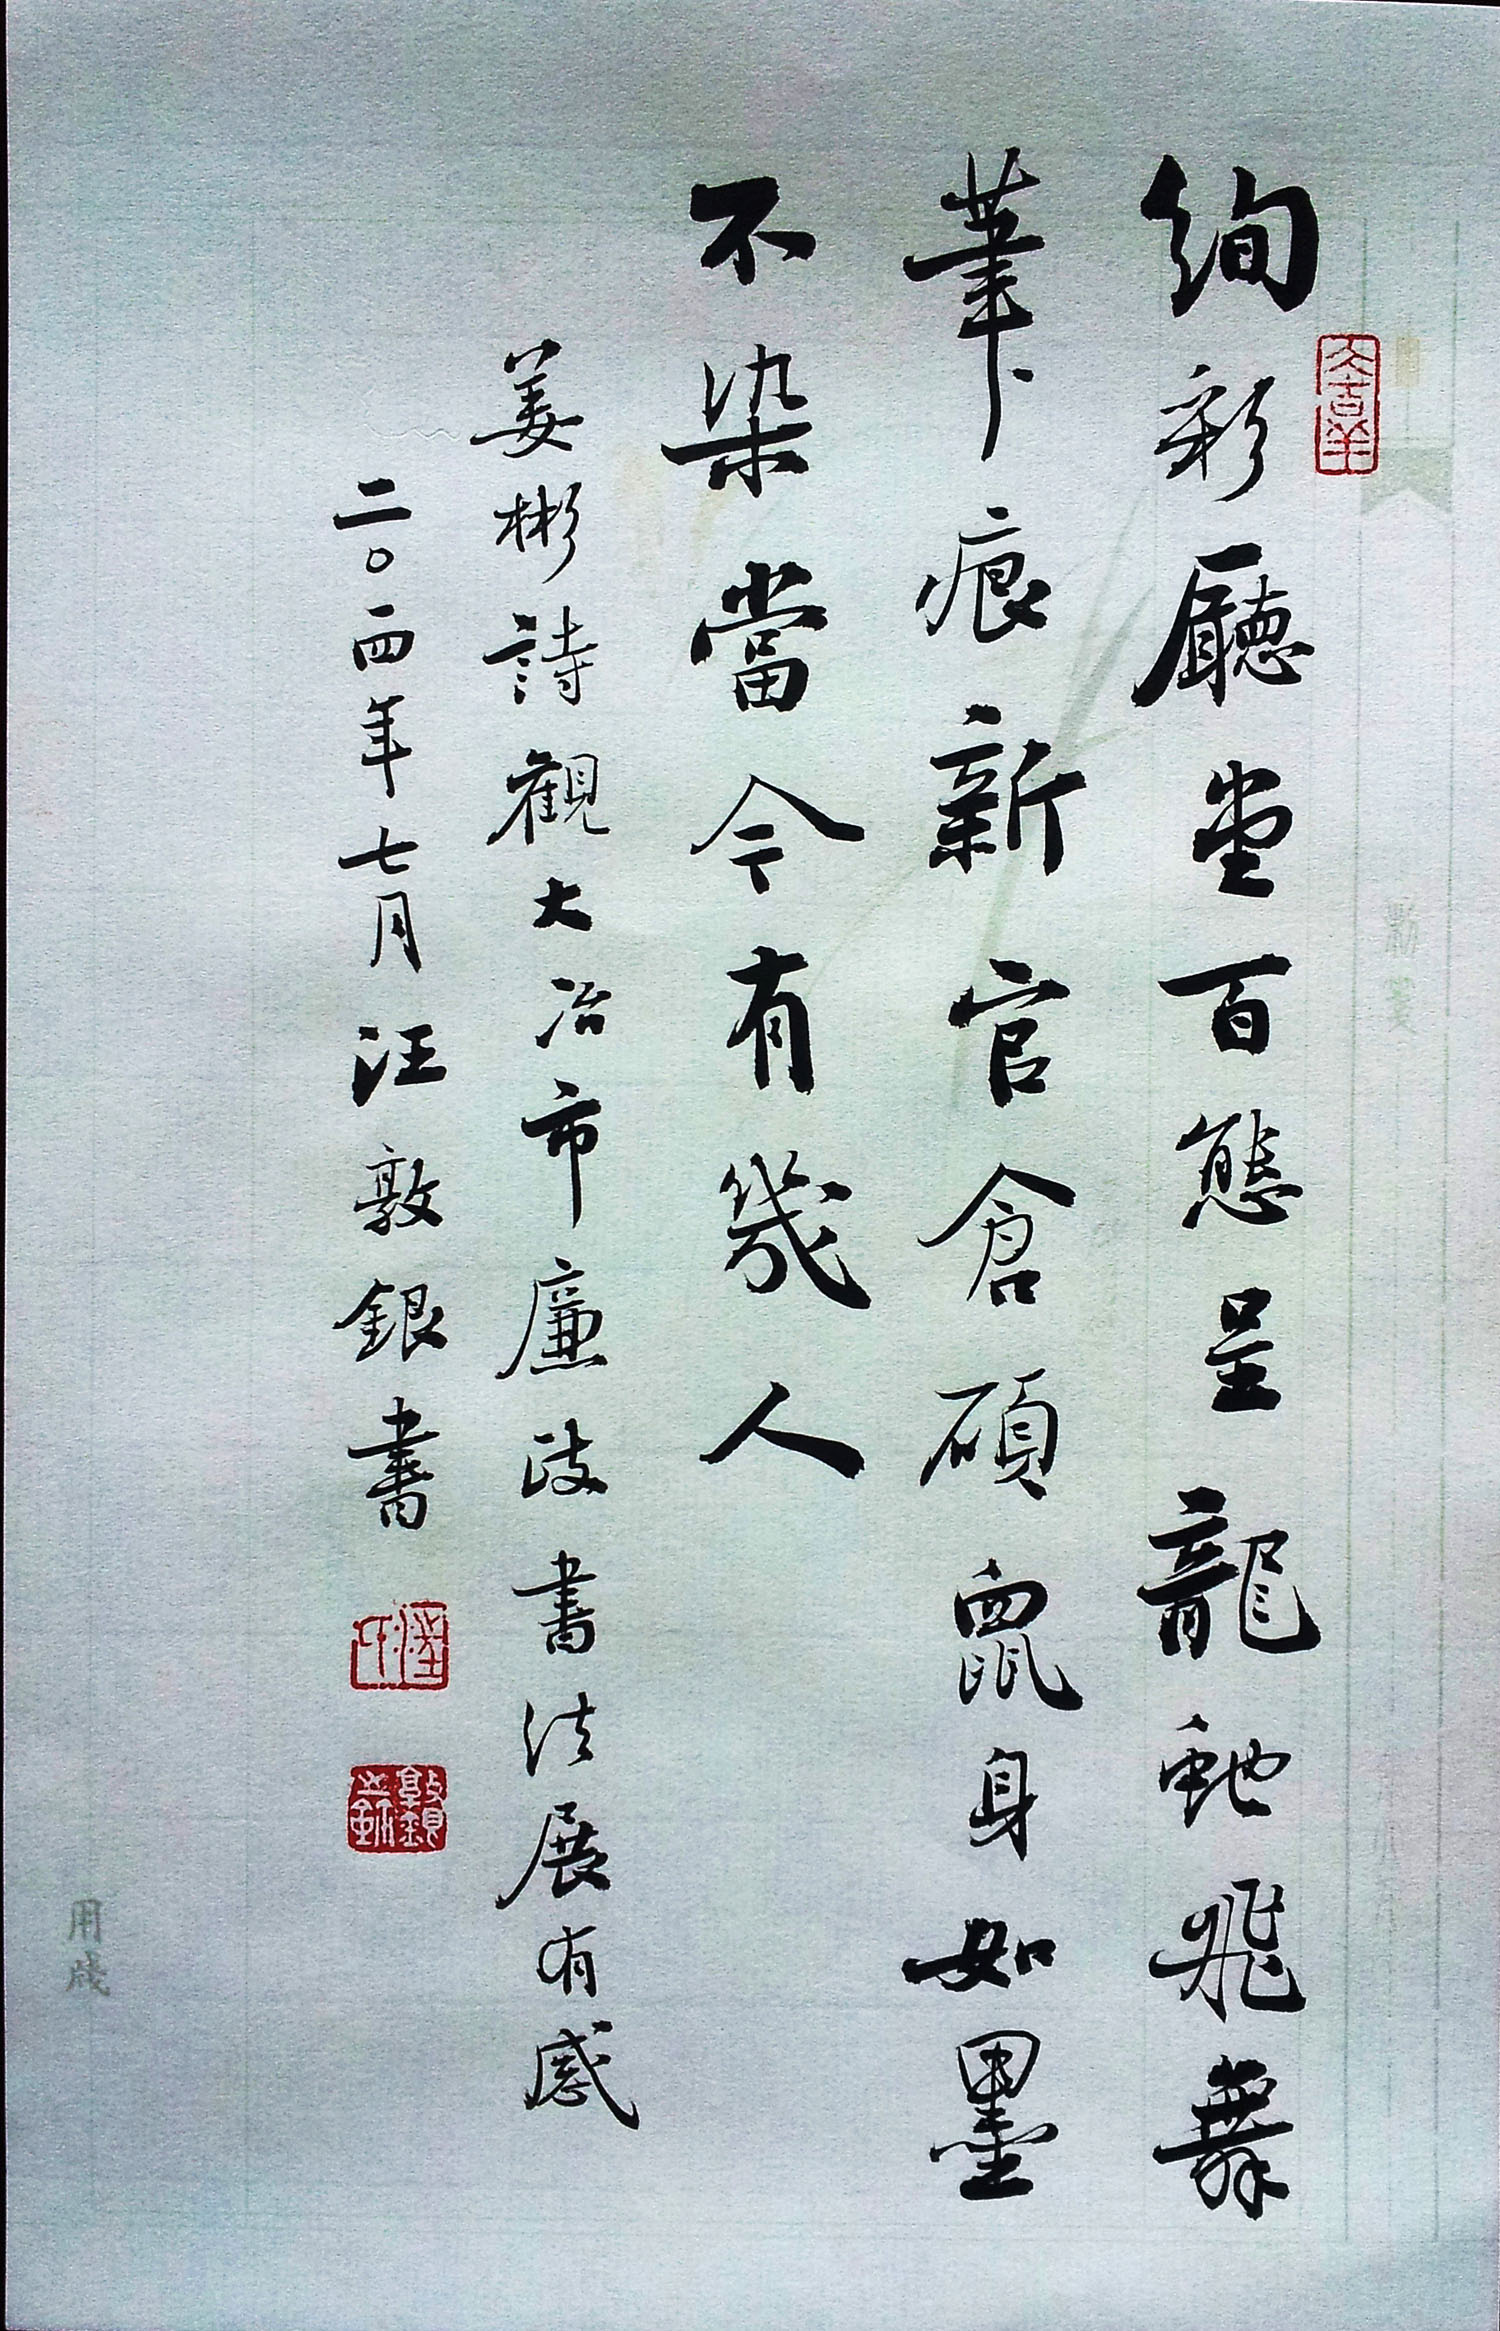 絢彩廳堂百態呈龍虵飛舞
筆痕新官倉碩鼠身如墨
不染當今有幾人
姜彬詩觀大冶市廉政書法展有感
二〇一四年七月汪敦銀書
用牋